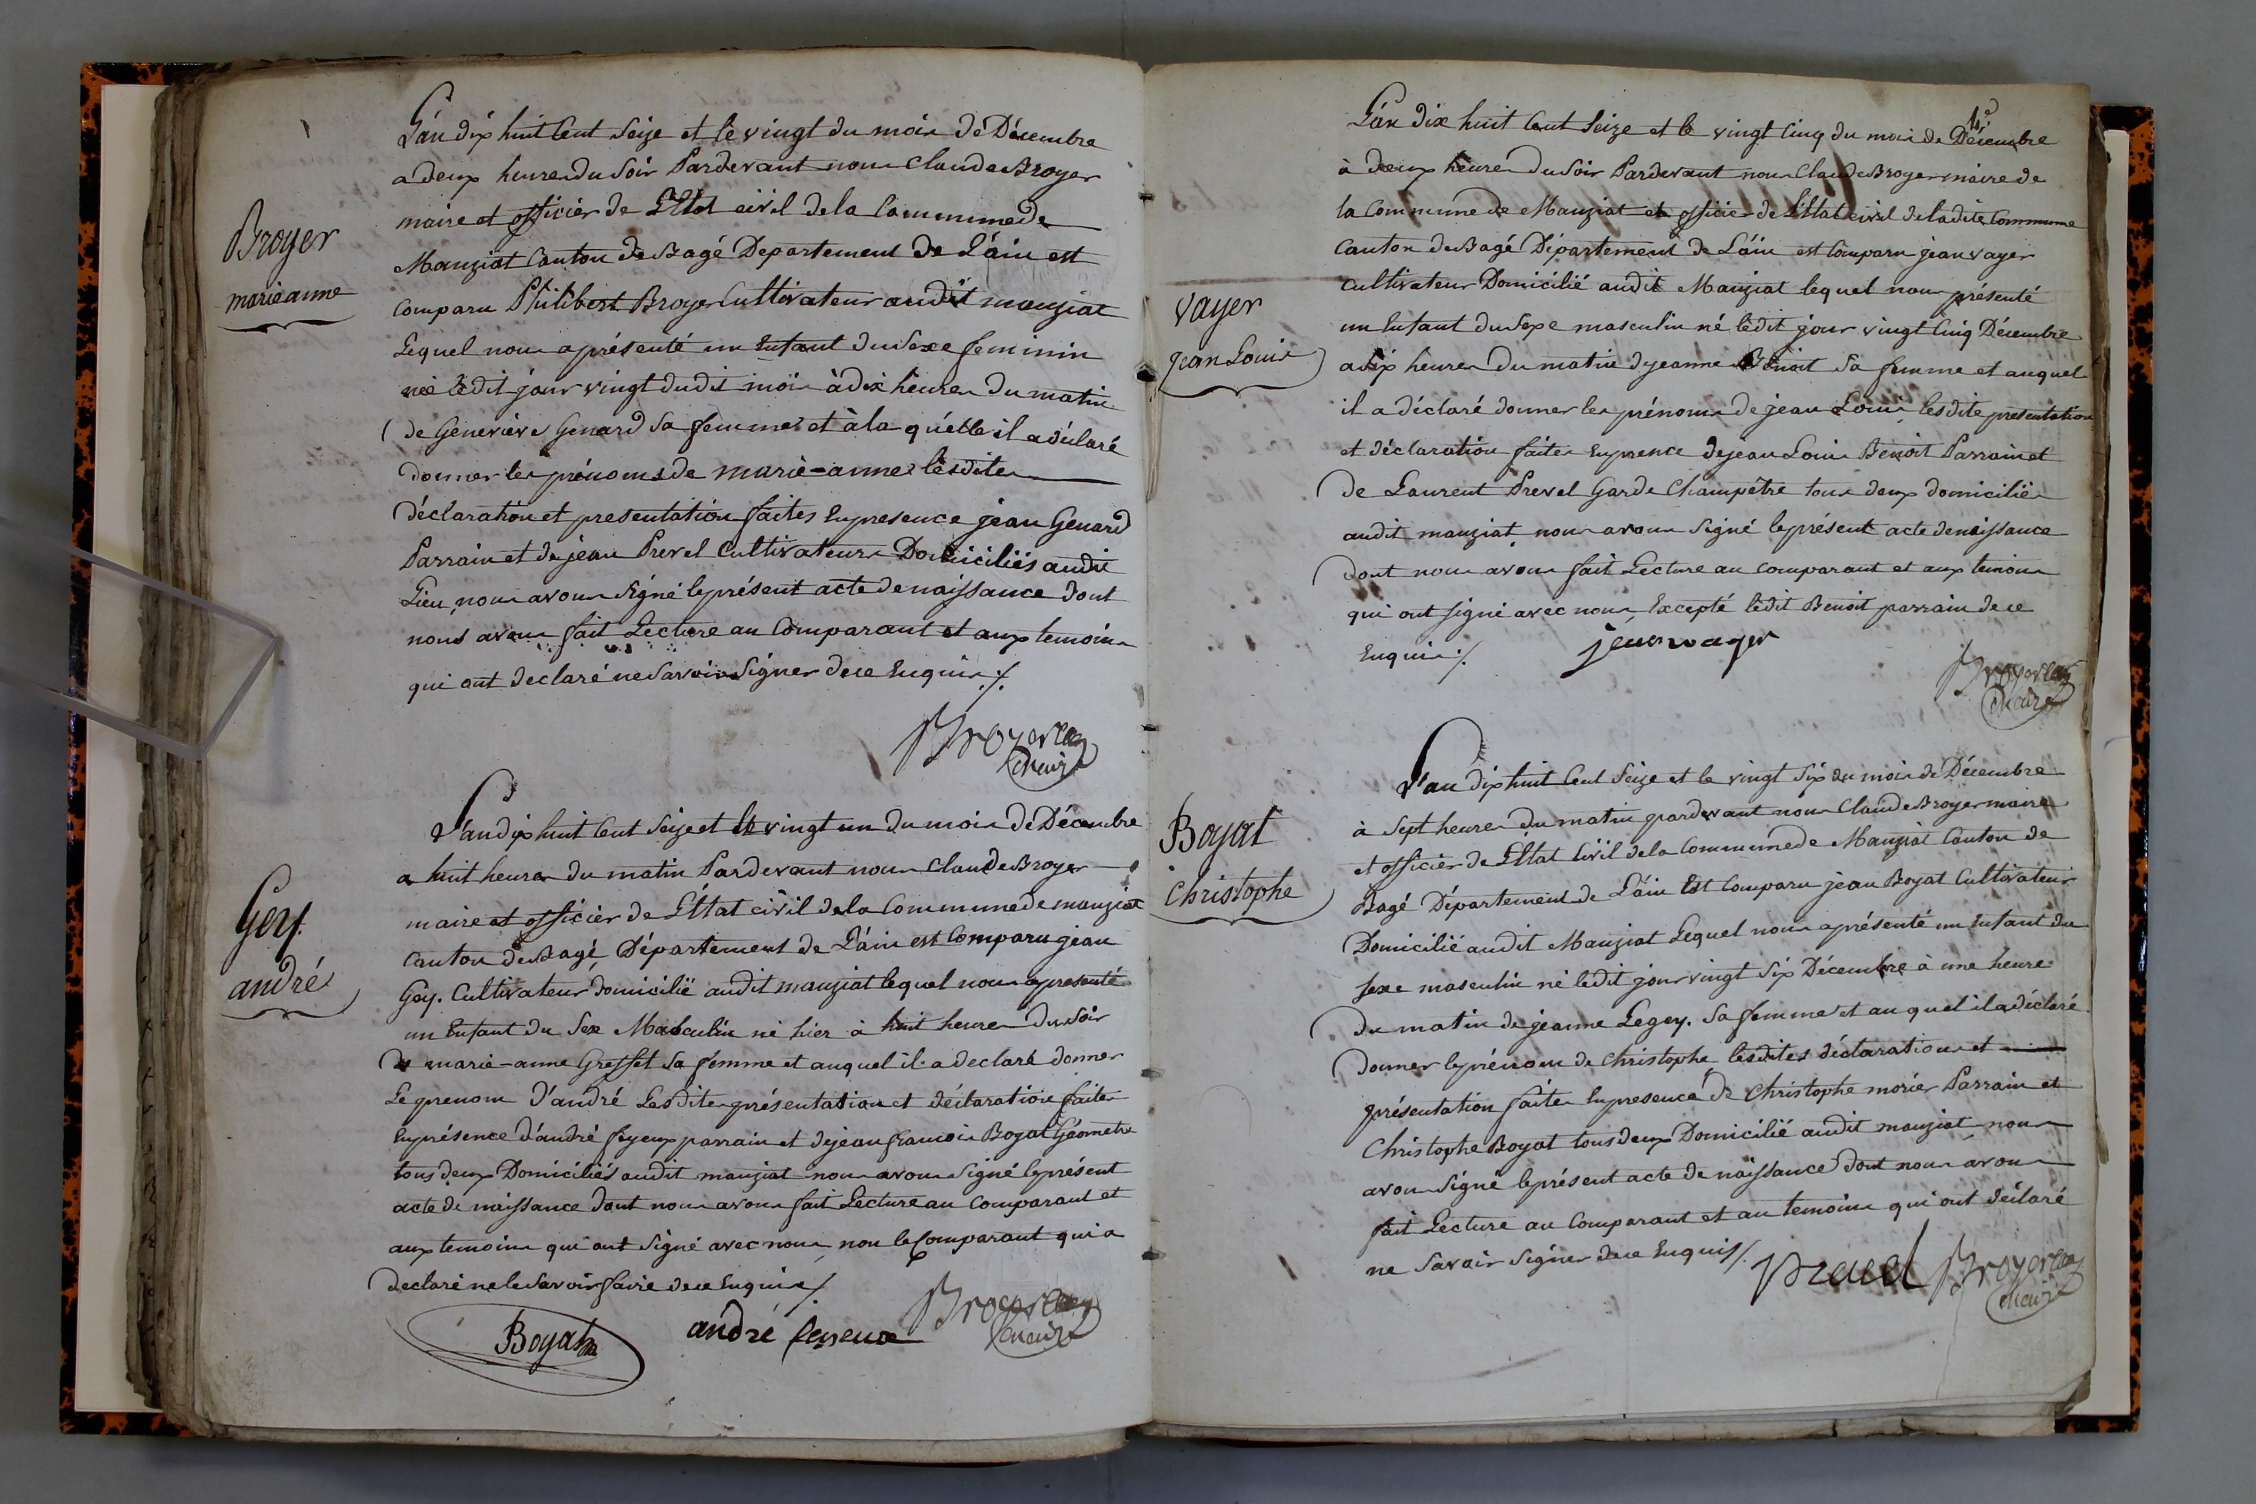 Broyer
marie anne
L'an dix huit Cent Seize et le vingt du mois de Décembre
a deux heures du Soir Pardevant nous Claude Broyer
maire et officier de L'Etat civil dela Commune de
Manziat Canton de Bagé Departement de L'ain est
Comparu Philibert Broyer Cultivateur audit manziat
Lequel nous a présenté un Enfant du Sexe feminin
née ledit jour vingt dudit mois à dix heures du matin
de Genevieve Genard Sa femme et à la quélle il a déclaré
donner les prénoms de marie-anne lesdites
déclaration et presentation faites En presence jean Genard
Parrain et de jean Prevel Cultivateurs Domiciliés audit
Lieu, nous avons Signé le présent acte de naissance dont
nous avons fait Lecture au Comparant et aux temoins
qui ont declaré ne Savoir Signer de ce Enquis ./.
Broyer
maire
Gey.
andré
L'an dix huit Cent Seize et le vingt un du mois de Décembre
a huit heures du matin Pardevant nous Claude Broyer
maire et officier de L'Etat civil de la Commune de manziat
Canton de Bagé Département de L'ain est Comparu jean
Gey. Cultivateur domicilié audit manziat lequel nous a presenté
un Enfant du Sexe Masculin né hier à huit heures du Soir
de marie-anne Greffet Sa femme et auquel il a declaré donner
Le prenom d'andré Lesdites présentation et déclaration faites
En présence d'andré feyeux parrain et de jean francois Boyat Géometre
tous deux Domiciliés audit manziat nous avons Signé le présent
acte de naissance dont nous avons fait Lecture au Comparant et
aux temoins qui ont Signé avec nous, non le Comparant qui a
declaré ne le Savoir faire de ce Enquis ./.
Boyat andré feyeux Broyer
maire
vayer
jean Louis
L'an dix huit Cent Seize et le vingt Cinq du mois de Décembre
à deux heures du Soir Pardevant nous Claude Broyer maire de
la Commune de Manziat et officier de L'Etat civil de ladite Commune
Canton de Bagé Département de L'ain est Comparu jean vayer
Cultivateur Domicilié audit Manziat lequel nous présenté
un Enfant du Sexe masculin né ledit jour vingt Cinq Décembre
a Six heures du matin de jeanne Benoit Sa femme et auquel
il a déclaré donner les prénoms de jean Louis, lesdites presentation
et déclaration faites En prence de jean Louis Benoit Parrain et
de Laurent Prevel Garde Champêtre tous deux domiciliés
audit manziat, nous avons Signé le présent acte de naissance
dont nous avons fait Lecture au Comparant et aux temoins
qui ont signé avec nous, Excepté ledit Benoit parrain de ce
Enquis ./. jean vayer
Broyer
maire
Boyat
Christophe
L'an dix huit Cent Seize et le vingt Six du mois de Décembre
à Sept heures du matin pardevant nous Claude Broyer maire
et officier de L'Etat Civil de la Commune de Manziat Canton de
Bagé Département de L'ain Est Comparu jean Boyat Cultivateur
Domicilié audit Manziat Lequel nous a présenté un Enfant du
Sexe masculin né ledit jour vingt Six Décembre à une heure
du matin de jeanne Legey. Sa femme et auquel il a déclaré
donner le prénom de Christophe, lesdites déclaration et
présentation faites En presence de Christophe morier Parrain et
Christophe Boyat tous deux Domicilié audit manziat nous
avons Signé le présent acte de naissance dont nous avons
fait Lecture au Comparant et au temoins qui ont déclaré
ne Savoir Signer de ce Enquis /.
Prevel Broyer
maire